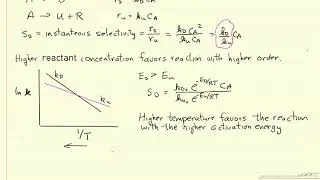 A → U + R    r_u = k_u C_A
S_D = instanteous selectivity = r_D/r_u = k_D C_A²/k_u C_A = k_D/k_u C_A
Higher reactant concentration favors reaction with higher order.
k_D
E_D > E_u
ln k
k_u
S_D = k_D₀ e^-E_D/RT C_A / k_u₀ e^-E_u/RT
1/T
Higher temperature favors the reaction
with the higher activation energy